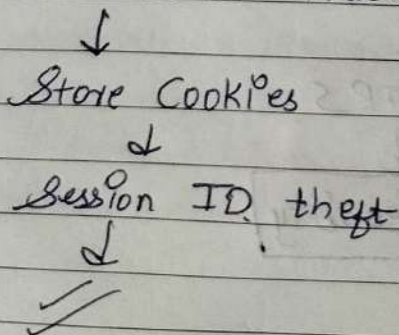 ↓
Store Cookies
↓
Session ID theft
↓